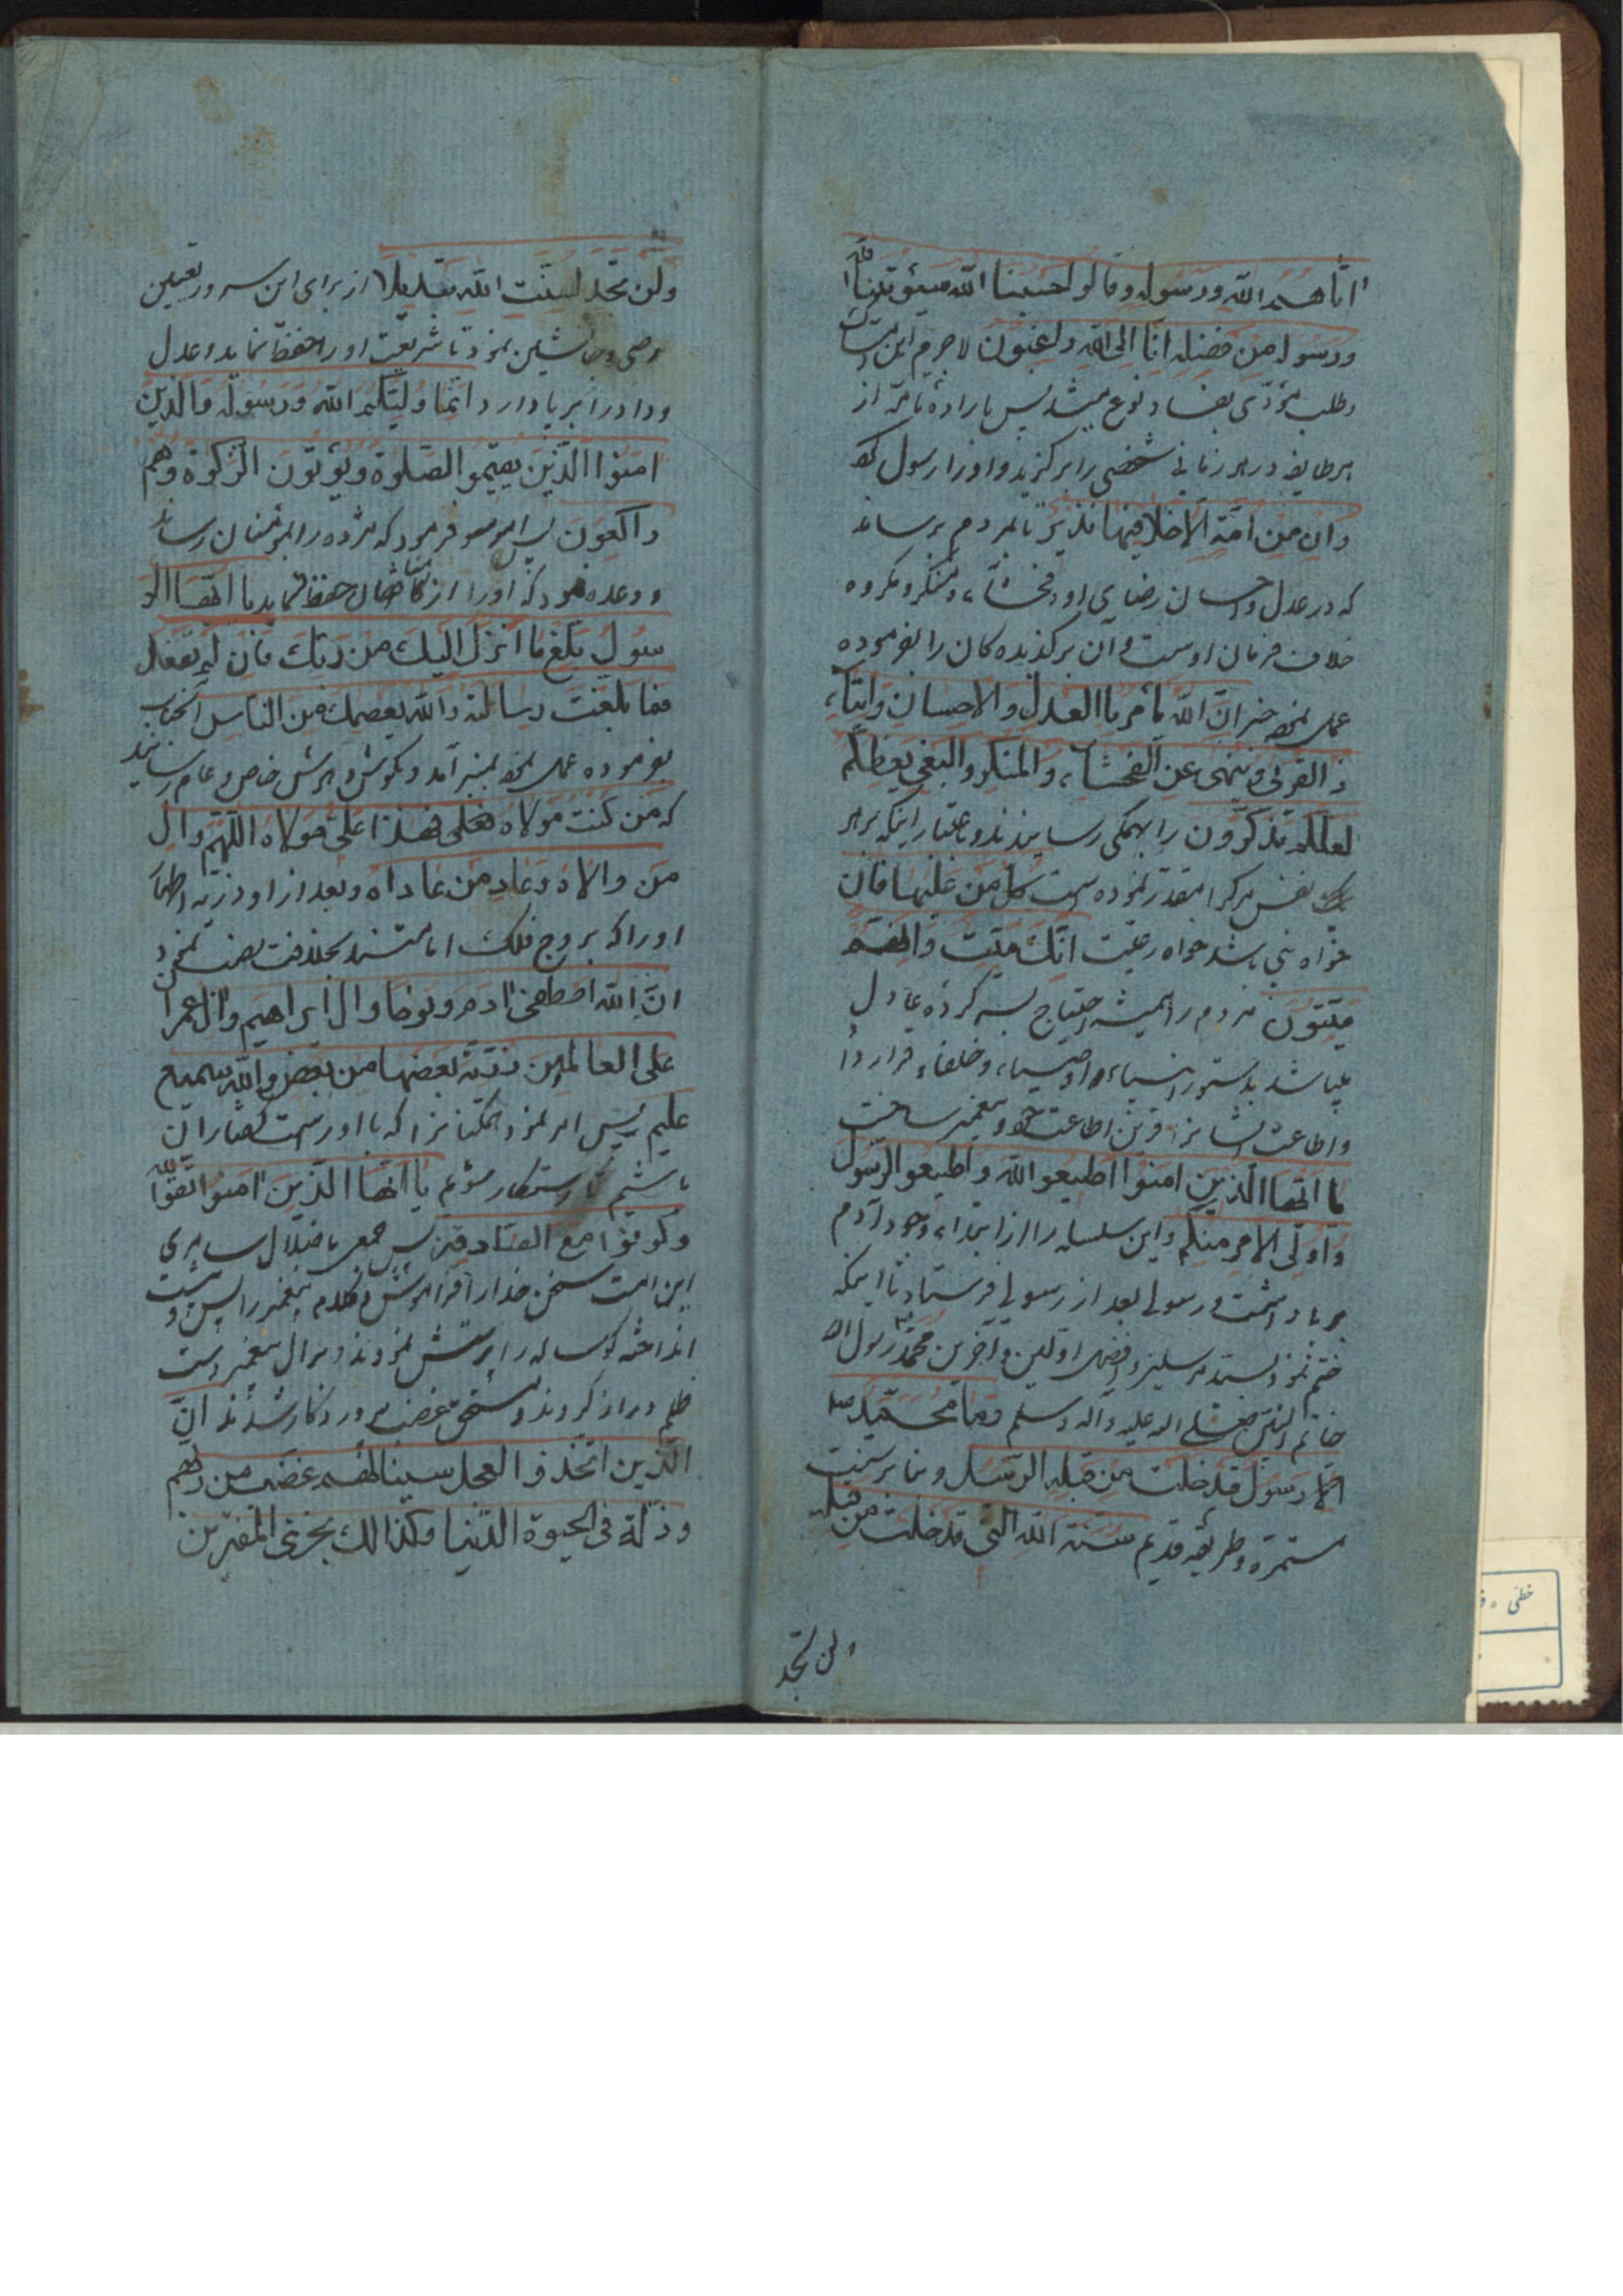 اتاهم الله ورسوله وقالوا حسبنا الله سیؤتینا الله
ورسوله من فضله انا الی الله راغبون لاجرم این
وطلب مؤدّی بفساد نوع میشد پس باراده تامّه از
هر طایفه در هر زمانی شخصی را برگزید و او را رسول
وان من امّة الاخلا فیها نذیر تا بمردم برساند
که در عدل و احسان رضای او و فحشآء و منکر و مکروه
خلاف فرمان اوست و آن برگذیده کان را بفرموده
عمل نمود خبر انّ الله یأمر باالعدل والاحسان وایتآء
ذالقربی وینهی عن الفحشآء والمنکر والبغی یعظکم
لعلکم تذکرّون را بهمکی رسانیدند و باعتبار اینکه بر هر
یک نفس مرک را مقدّر نموده است کل من علیها فان
خواه نبی باشد خواه رعیّت انّک میّت وانهم
میّتون مردم را همیشه احتیاج بسر کرده عادل
میباشد بدستور انبیاء و اوصیاء و خلفاء قرار داد
و اطاعت ایشانرا قرین اطاعت خود و پیغمبر ساخت
یا ایّها الّذین امنوا اطیعو الله و اطیعو الرّسول
واولی الامر منکم و این سلسله را از ابتداء وجود آدم
برپا داشت و رسولی بعد از رسولی فرستاد تا اینکه
ختم نمود بسیّد مرسلین و افضل اوّلین و آخرین محمّد رسول الله
خاتم النبیّین صلّی الله علیه و آله و سلم وما محمّد
الّا رسول قد خلت من قبله الرّسل و بنا بر سنّت
مستمرّه و طریقه قدیم سنّة الله الّتی قد خلت من قبله
ولن تجد
ولن تجد لسنّت الله تبدیلا از برای این سرور تعیین
وصی و جانشین نمود تا شریعت او را حفظ نماید و عدل
و داد را برپا دارد انّما ولیّکم الله ورسوله والّذین
امنوا الّذین یقیمو الصّلوة ویؤتون الزّکوة وهم
راکعون پس امر فرمود که مژده را بمؤمنان رساند
و وعده نمود که او را از حفظ نماید یا ایّها الر
سول بلّغ ما انزل الیک من ربّک فان لم تفعل
فما بلّغت رسالته والله یعصمک من النّاس آنجناب
بفرموده عمل نمود بمنبر آمد و بگوش و هوش خاص و عام رسانید
که من کنت مولاه فعلی فهذا علی مولاه اللّهم وال
من والاه وعاد من عاداه و بعد از او ذریّه اطهار
او را که بروج فلک امامتند بخلافت نصب نمود
انّ الله اصطفی ادم ونوحا وال ابراهیم وال عمران
علی العالمین ذرّیّة بعضها من بعض والله سمیع
علیم پس امر نمود همکنانرا که با او راست کفتار ان
باشیم تا رستکار شویم یا ایّها الّذین امنوا اتّقوا الله
وکونوا مع الصّادقین پس جمعی باضلال سامری
این امّت سخن خدا را فراموش و کلام پیغمبر را پس پشت
انداخته کوساله را پرستش نمودند و بر آل پیغمبر دست
ظلم دراز کردند و مستحق غضب پروردکار شدند انّ
الّذین اتّخذو العجل سینالهم غضب من ربّهم
وذلّة فی الحیوة الدّنیا وکذالک نجزی المفترین
خطی